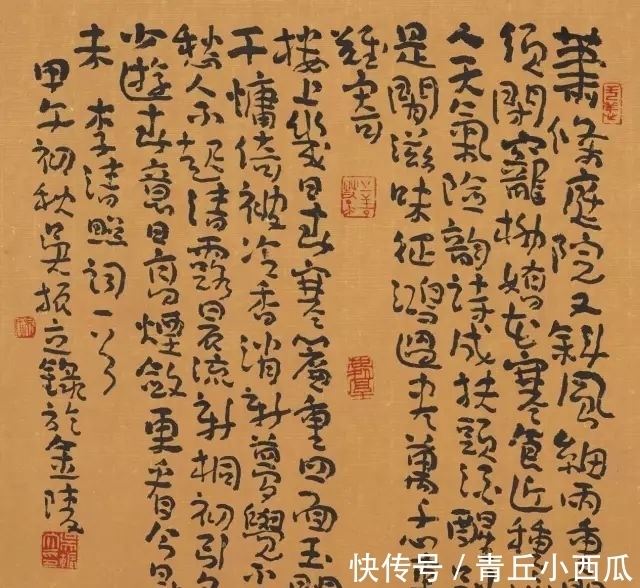 蕭條庭院又斜風細雨重
須閉寵柳嬌花寒食近種
人天氣險韻詩成扶頭酒醒
是閒滋味征鴻過盡萬千心
難寄
樓上幾日春寒簾垂四面玉闌
干慵倚被冷香消新夢覺不
愁人不起清露晨流新桐初引
少遊春意日高煙斂更看今日
未 李清照詞一首
甲午初秋吳振立錄於金陵
快传号 / 青丘小西瓜